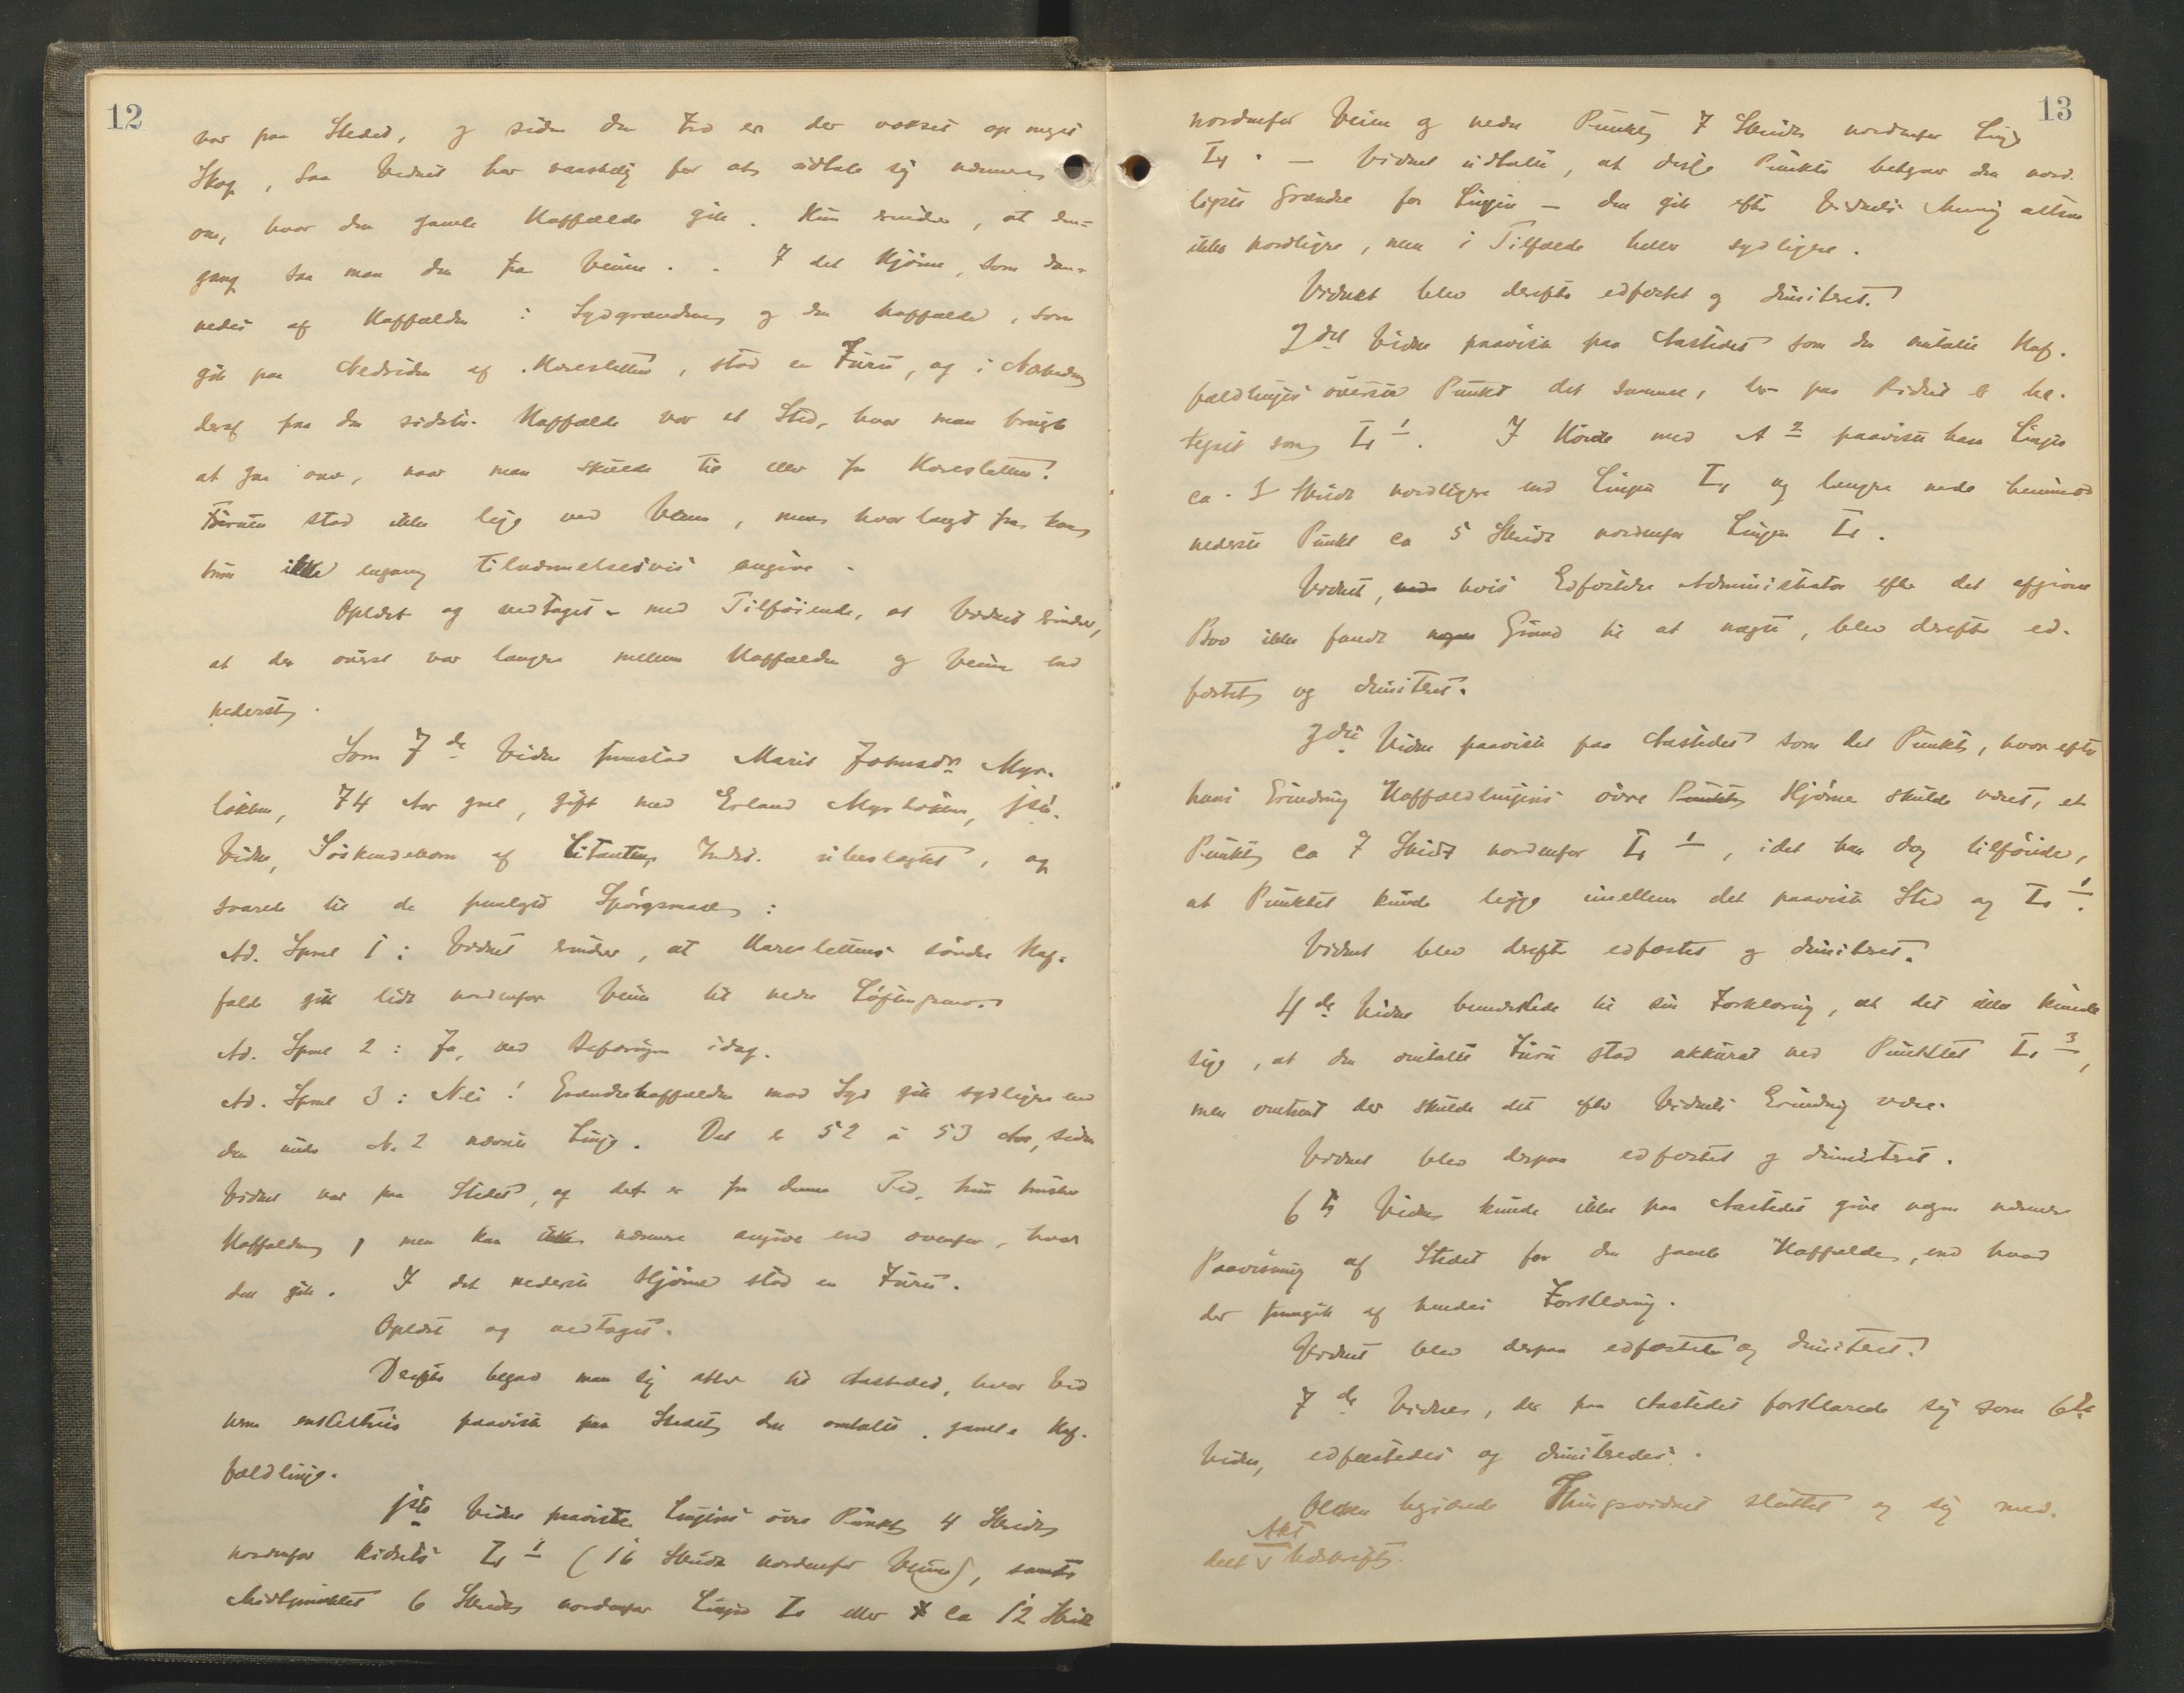 12
var paa Stedet, og siden den Tid er der vokset op meget
Skog, saa Vidnet har vanskelig for at udtale sig nærmere
om, hvor den gamle Havfælde gik. Hun erindrer, at den-
gang saa man den fra Veien. I det Hjørne, som dan-
nedes af Havfælden i Sydgrændsen og den Havfælde, som
gik paa Nedsiden af Koresletten, stod en Furu, og i Nærheden
deraf paa den sidste Havfælde var et Sted, hvor man brugte
at gaa over, naar man skulde til eller fra Koresletten.
Furuen stod ikke lige ved Veien, men hvor langt fra kan
hun ikke engang tilnærmelsesvis angive.
Oplæst og vedtaget med Tilføiende, at Vidnet erindrer,
at der øverst var længre mellem Havfælden og Veien end
nederst.
Som 7de Vidne fremstod Marit Johnsdr Myr-
løkken, 74 Aar gml, gift med Erland Myrløkken, 1ste
Vidne, Søskendebarn af Citanten, Indst. ubeslægtet, og
svarede til de fremlagte Spørgsmaal:
Ad. Spml 1: Vidnet erindrer, at Koreslettens søndre Hav-
fælde gik lidt nordenfor Veien til nedre
Ad. Spml 2: Ja, ved Befaringen idag.
Ad. Spml 3: Nei! Grændsehavfælden mod Syd gik sydligere end
den under N. 2 nævnte Linje. Det er 52 à 53 Aar, siden
Vidnet var paa Stedet, og det er fra denne Tid, hun husker
Havfælden, men kan ikke nærmere angive end ovenfor, hvor
den gik. I det nederste Hjørne stod en Furu.
Oplæst og vedtaget.
Derefter begav man sig atter til Aastedet, hvor Vid
nerne enkeltvis paaviste paa Stedet den omtalte gamle Hav-
fældlinje.
1ste Vidne paaviste Linjens øvre Punkt 4 Skridt
nordenfor Ridsets I1 1 (16 Skridt nordenfor Veien), samt
Midtpunktet 6 Skridt nordenfor Linjen I1 eller ca 12 Skridt
13
nordenfor Veien og nedre Punkt 7 Skridt nordenfor Linje
I1. — Vidnet udtalte, at disse Punkter betegner den nord-
ligste Grændse for Linjen — den gik efter Vidnets Mening altsaa
ikke nordligere, men i Tilfælde heller sydligere.
Vidnet blev derefter edfæstet og dimitteret.
2det Vidne paaviste paa Aastedet som den omtalte Hav-
fældlinjes øverste Punkt det samme, der paa Ridset er be-
tegnet som I1 1. I Høide med A 2 paaviste han Linjen
ca. 1 Skridt nordligere end Linjen I1 og længre nede henimod
nederste Punkt ca 5 Skridt nordenfor Linjen I1.
Vidnet, hvis Edfæstelse Administrator efter det afgivne
ikke fandt Grund til at nægte, blev derefter ed-
fæstet og dimitteret.
3die Vidne paaviste paa Aastedet som det Punkt, hvor efter
hans Erindring Havfældlinjens øvre Hjørne skulde været, et
Punkt ca 7 Skridt nordenfor I1 1, idet han dog tilføiede,
at Punktet kunde ligge imellem det paaviste Sted og I1 1.
Vidnet blev derefter edfæstet og dimitteret.
4de Vidne bemærkede til sin Forklaring, at det ikke kunde
sige, at den omtalte Furu stod akkurat ved Punktet I1 3,
men omtrent der skulde det efter Vidnets Erindring være.
Vidnet blev derpaa edfæstet og dimitteret.
6te Vidne kunde ikke paa Aastedet give nogen nærmere
Paavisning af Stedet for den gamle Havfælde, end hvad
der fremgik af hendes Forklaring.
Vidnet blev derpaa edfæstet og dimitteret.
7de Vidne, der paa Aastedet forklarede sig som 6te
Vidne, edfæstedes og dimitteredes.
begjærede Thingsvidnet sluttet og sig med-
delt Akt Udskrift.